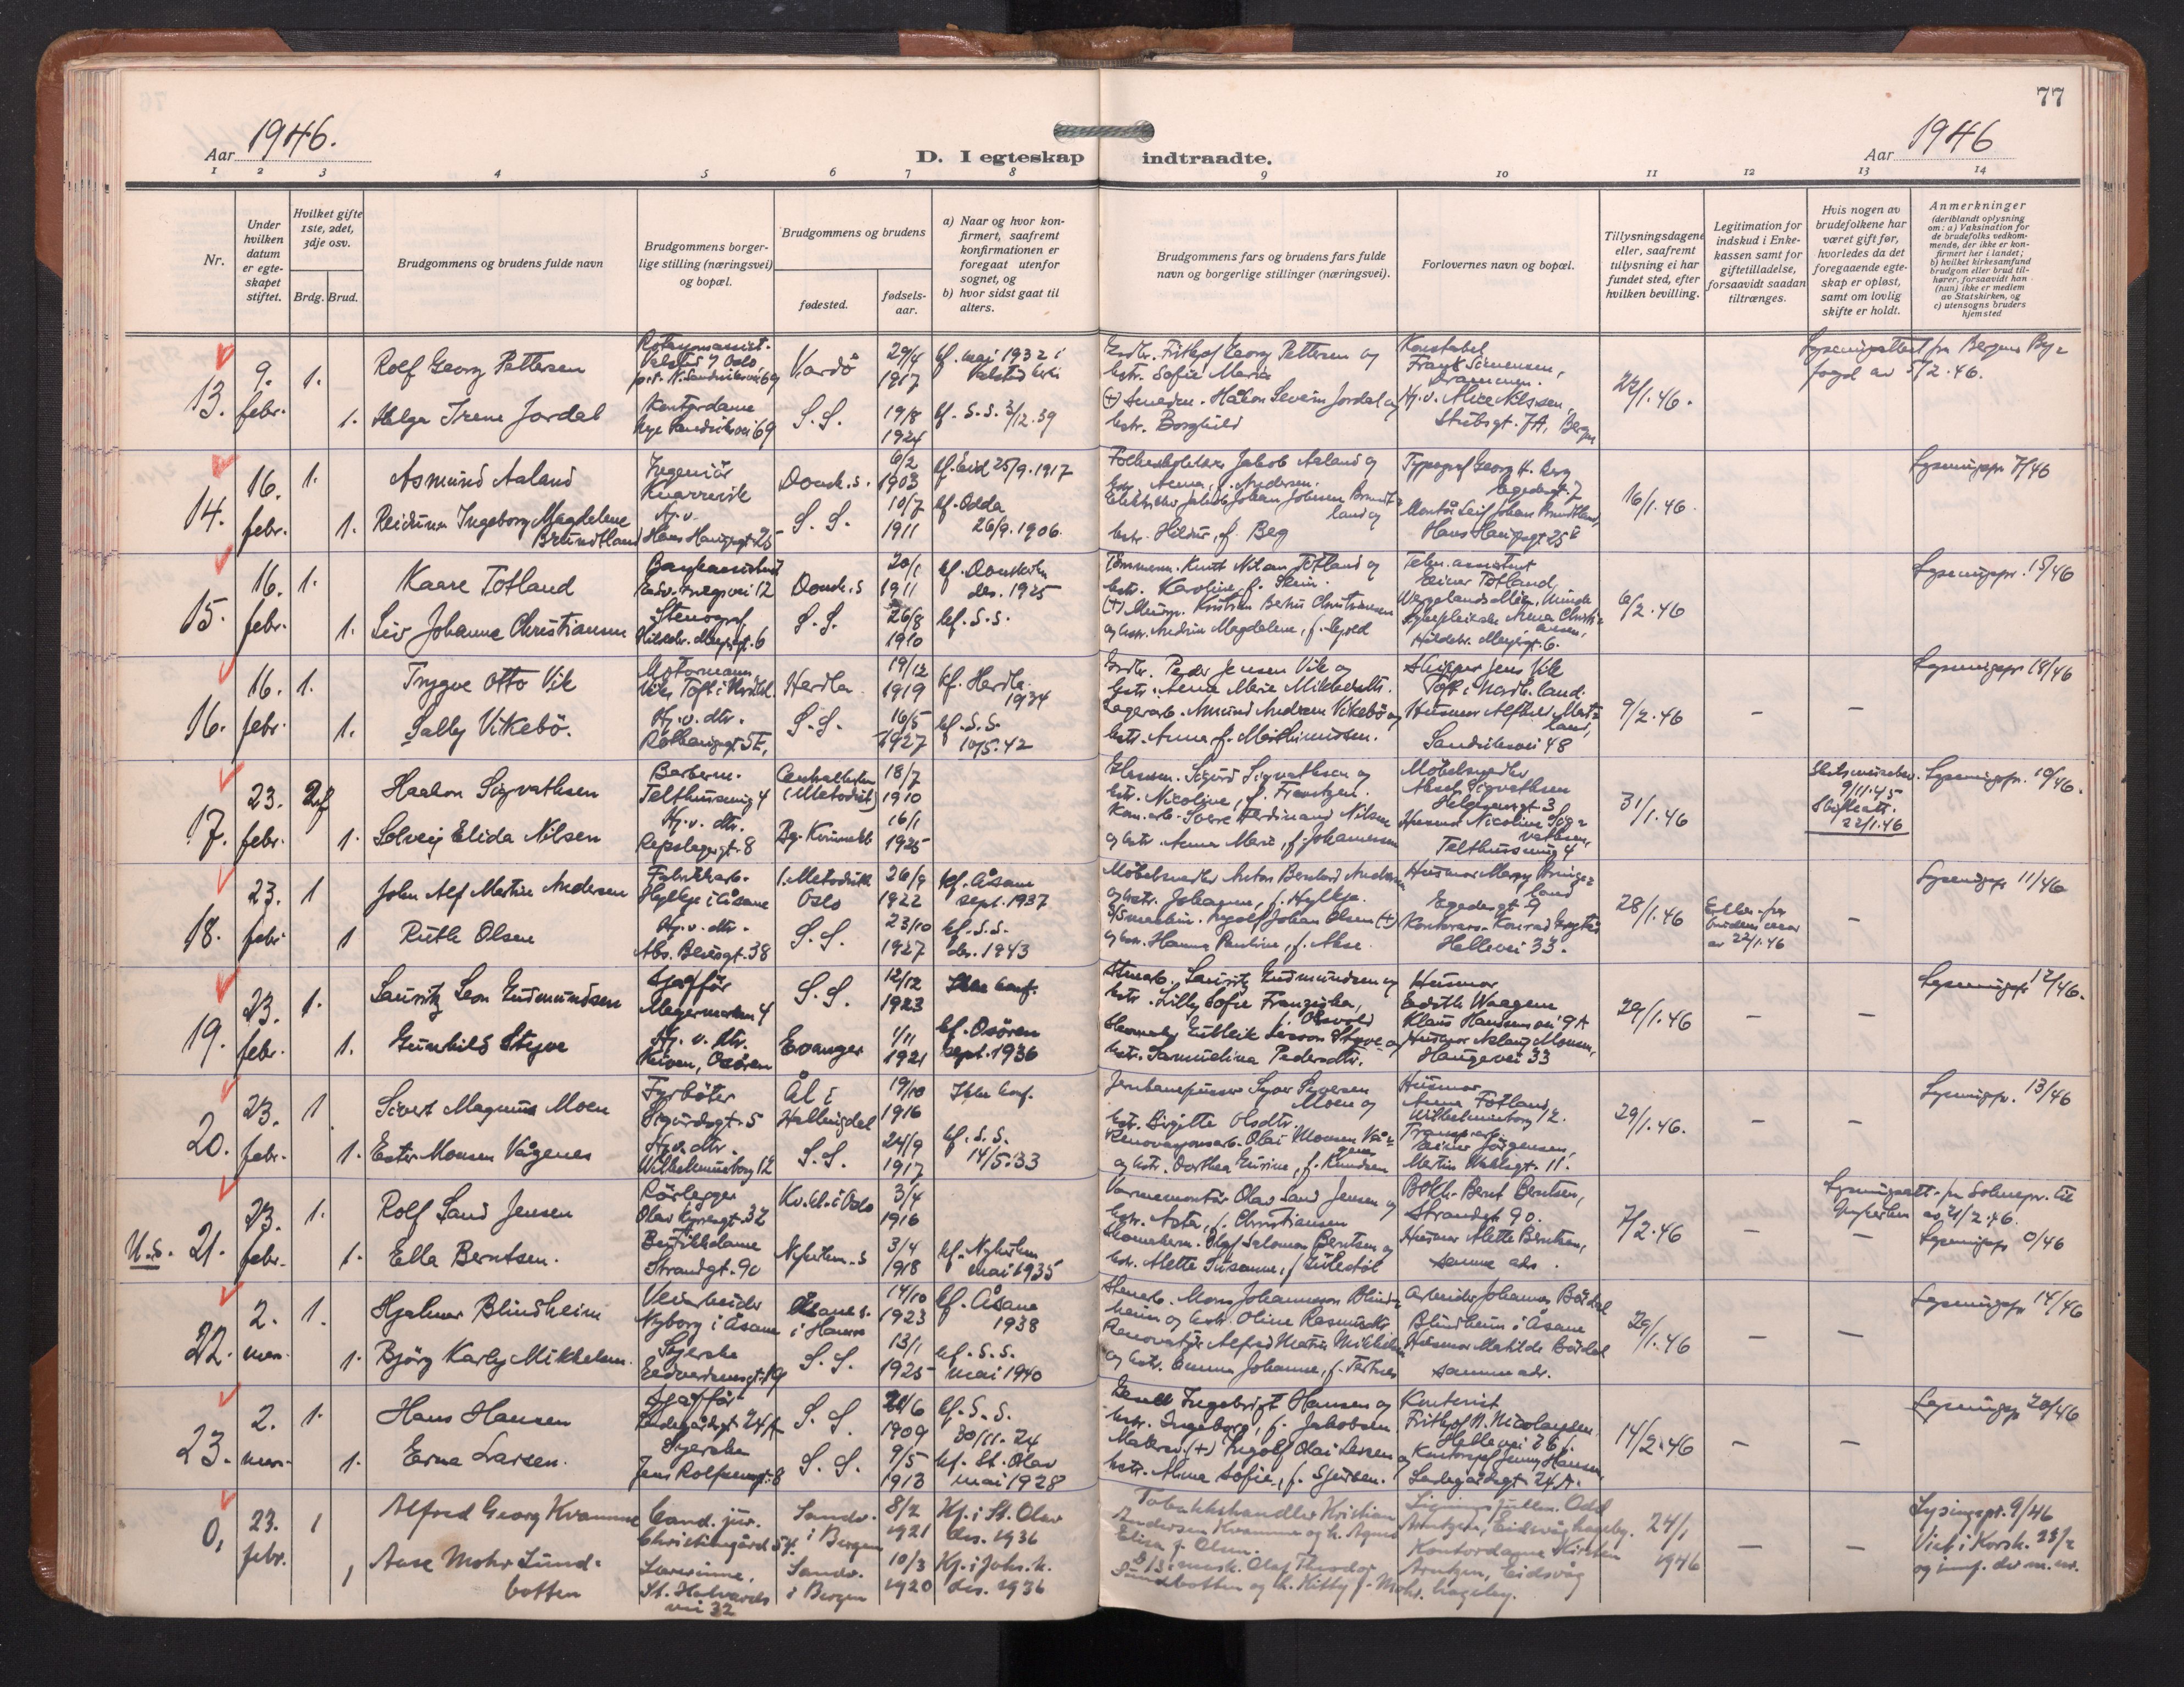 77
Aar 1946.
D. I egteskap indtraadte.
Aar 1946
1 2 3 4 5 6 7 8 9 10 11 12 13 14
Nr.
Under hvilken datum er egteskapet stiftet.
Hvilket gifte 1ste, 2det, 3dje osv.
Brdg. Brud.
Brudgommens og brudens fulde navn
Brudgommens borgerlige stilling (næringsvei) og bopæl.
Brudgommens og brudens
fødested.
fødselsaar.
a) Naar og hvor konfirmert, saafremt konfirmationen er foregaat utenfor sognet, og
b) hvor sidst gaat til alters.
Brudgommens fars og brudens fars fulde navn og borgerlige stillinger (næringsvei).
Forlovernes navn og bopæl.
Tillysningsdagene eller, saafremt tillysning ei har fundet sted, efter hvilken bevilling.
Legitimation for indskud i Enkekassen samt for giftetilladelse, forsaavidt saadan tiltrænges.
Hvis nogen av brudefolkene har været gift før, hvorledes da det foregaaende egteskap er opløst, samt om lovlig skifte er holdt.
Anmerkninger
(deriblandt oplysning om: a) Vaksination for de brudefolks vedkommende, der ikke er konfirmert her i landet; b) hvilket kirkesamfund brudgom eller brud tilhører, forsaavidt han (hun) ikke er medlem av Statskirken, og c) utensogns bruders hjemsted
13. 9. febr. 1. Rolf Georg Pettersen
Vardö 29/4 1917 kf. mai 1932 i
Frithjof Georg Pettersen og
hstr. Sofie Marie
Konstabel
Drammen.
Bergens By-
fogd av 5/2.46.
1. Helga Irene Jordal
Kontordame
S.S. 19/8 1924 kf. S.S. 3/12.39
Håkon Severin Jordal og
hstr. Borghild
Hj.v. Alice Nilssen,
Stubsgt. 7A, Bergen
14. 16. febr. 1. Asmund Aaland
Ingeniör
Knarrevik
Domk.s. 6/2 1903 kf. Eid 25/9.1917
Jakob Aaland og
hstr. Anna, f. Andersen.
Typograf Georg H. Berg
Egedesgt. 7
16/1.46.
Lysningspr. 7/46
1. Reidunn Ingeborg Magdelene
Brundtland
Hj.v.
Hans Haugesgt 25
S.S. 10/7 1911 kf. Odda
26/9.1906.
hstr. Hildur, f. Berg
Montör Leif Johan Brundtland,
Hans Haugsgt 25
15. 16. febr. 1. Kaare Totland
Bankassistent
Domk.s 20/1 1911 kf. Domkirken
des. 1925
Tömmerm. Knut Nilsen Totland og
hstr. Karoline, f. Skeie.
Telegr.assistent
Einar Totland,
6/2.46
Lysningspr. 15/46
1. Liv Johanne Christiansen
Stenograf
S.S. 26/8 1910 kf. S.S.
Kristian Christiansen
og hstr. Andrine Magdalene,
Sykepleierske Anna Christiansen,
Hildebr. Meyersgt. 6.
16. 16. febr. 1. Trygve Otto Vik
Motormann
Herdla. 19/12 1919 kf. Herdla
1934
Gdbr. Peder Jensen Vik og
hstr. Anna Marie Mikkelsdtr.
Skipper Jens Vik
9/2.46
Lysningspr. 18/46
1. Sally Vikebö.
Hj.v. dtr.
S.S. 16/5 1927 kf. S.S.
10/5.42
Lagerarb. Amund Andreas Vikebö og
hstr. Anna f. Mathiassen.
Sandviksvei 48
17. 23. febr. Haakon Sigvathsen
Barberm.
Telthussmug 4
(Metodist) 18/7 1910
Sigurd Sigvathsen og
hstr. Nicoline, f. Frantzen.
Möbelsnedker
Aksel Sigvathsen
Helgesensgt 3
31/1.46
9/11.45
Skifteatt.
22/1.46
Lysningspr. 10/46.
1. Solveig Elida Nilsen
Hj.v. dtr.
Repslagergt. 8
16/1 1925
Kom.arb. Sverre Ferdinand Nilsen
og hstr. Anna Marie, f. Johannesen
Husmor Nicoline Sigvathsen,
Telthussmug 4
18. 23. febr. 1 John Alf Martin Andersen
Fabrikkarb.
Hylkje i Åsane
(Metodistk
Oslo 26/9 1922 kf. Åsane
sept. 1937
Möbelsnedker Anton Bernhard Andersen
og hstr. Johanne, f. Hylkje.
Egedesgt. 9
28/1.46
av 22/1.46
Lysningspr 11/46
1 Ruth Olsen
Hj.v. dtr.
Abs. Beyersgt. 38
S.S. 23/10 1927 kf. S.S.
des. 1943
Johan Olsen (+)
og hstr. Hanna Pauline, f. Aase.
Hellevei 33.
19. 23. febr. 1. Lauritz Leon Gudmundsen
Sjåfför
S.S. 12/12 1923 Ikke konf.
Lauritz Gudmundsen og
hstr. Lilly Sofie Franziska,
Husmor
Edith Waagene
Klaus Hanssensvei 9A
29/1.46
Lysningspr 12/46.
1. Gunhild Styve
Hj.v. dtr.
Osören
Evanger 1/11 1921 kf. Osören
sept. 1936
Skomaker Gulleik Larsson Styve og
hstr. Samueline Pedersdtr.
Husmor Aslaug Monsen,
Haugevei 33
20. 23. febr. 1 Sivert Magnus Moen
Fyrböter
Sigurdsgt. 5
Ål i
Hallingdal 19/10 1916 Ikke konf.
Jernbanepusser Syver Syversen
Moen og
hstr. Birgitte Olsdtr.
Husmor
Anna Totland
Wilhelmineborg 12.
29/1.46.
Lysningspr. 13/46
1. Ester Monsen Vågenes
Hj.v. dtr.
Wilhelmineborg 12
S.S. 24/9 1917 kf. S.S.
14/5.33
Renovasjonsarb. Olai Monsen Vågenes
og hstr. Dorthea Gurine, f. Knudsen
Einar Jörgensen,
Martin Vahlsgt. 11.
U.s. 21. 23. febr. 1. Rolf Sand Jensen
Rörlegger
Olav Kyrresgt. 32
Kv.kl. i Oslo 3/4 1916
Varmemontör Olav Sand Jensen og
hstr. Asta, f. Christiansen
Bokh. Bernt Berntsen,
Strandgt. 90.
7/2.46
Lysningsatt. fra Solheimspr. til
Nykirken av 21/2.46.
Lysningspr 0/46
1. Ella Berntsen.
Butikkdame
Strandgt. 90
Nykirken.s 3/4 1918 kf. Nykirken
mai 1935
Olaf Salomon Berntsen og
hstr. Alette Susanne, f. Gulestöl
Husmor Alette Berntsen,
samme adr.
22. 2. mar. 1. Hjalmar Blindheim
Veiarbeider
Nyborg i Åsane
Åsane s.
i Hamre 14/10 1923 kf. Åsane
1938
Stenarb. Mons Johannesson Blindheim
og hstr. Oline Rasmusdtr
Arbeider Johannes Bördal
Blindheim i Åsane
29/1.46
Lysningspr 14/46
1. Björg Karly Mikkelsen.
Syerske
S.S. 13/1 1925 kf. S.S.
mai 1940
Renovatör Alfred Martin Mikkelsen
og hstr. Emma Johanne, f. Tertnes
Husmor Matilde Bördal
samme adr.
23. 2. mar. 1. Hans Hansen
Sjåfför
Ladegårdsgt. 24A
S.S. 21/6 1909 kf. S.S.
30/11.24
Ingebrigt Hansen og
hstr. Ingeborg, f. Jakobsen
Kontorist
Frithjof N. Nicolaysen
Hellevei 26
14/2.46
Lysningspr 20/46
1. Erna Larsen.
Syerske
Jens Rolfsensgt. 8
S.S. 9/5 1913 kf. St. Olav
mai 1928
Malersv. (+) Ingolf Olai Larsen og
hstr. Anna Sofie, f. Sjursen.
Jenny Hansen
Ladegårdsgt. 24A.
0, 23. febr. 1 Alfred Georg Kvamme
Cand. jur.
Christinegård 54.
Sandv.
i Bergen 8/2 1921 Kf. i St. Olav
des. 1936
Tobakkshandler Kristian
Andersen Kvamme og h. Agnes
Elisa f. Olsen.
Odd
Arntzen, Eidsvåg hageby.
24/1 1946
Lysingspr. 9/46
Viet i Korsk. 23/2
og innf. der m. nr.
1 Aase Mohr Sundbotten
Lærerinne,
St. Halvards
vei 32
Sandv.
i Bergen 10/3 1920 Kf. i Johs.k.
des. 1936
D/S. mask. Olaf Theodor
Sundbotten og h. Kitty f. Mohr.
Kontordame Kirsten
Arntzen, Eidsvåg
hageby.